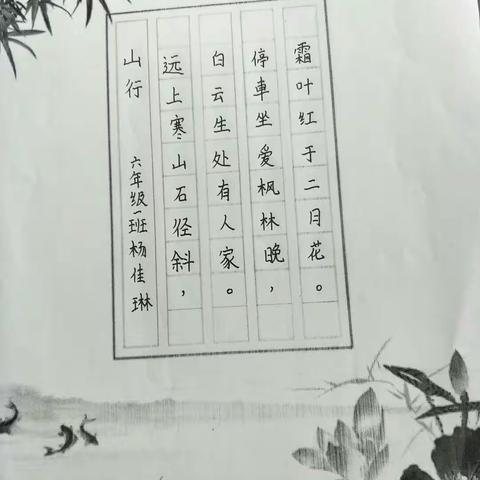 山行
六年级一班杨佳琳
远上寒山石径斜，
白云生处有人家。
停車坐爱枫林晚，
霜叶红于二月花。